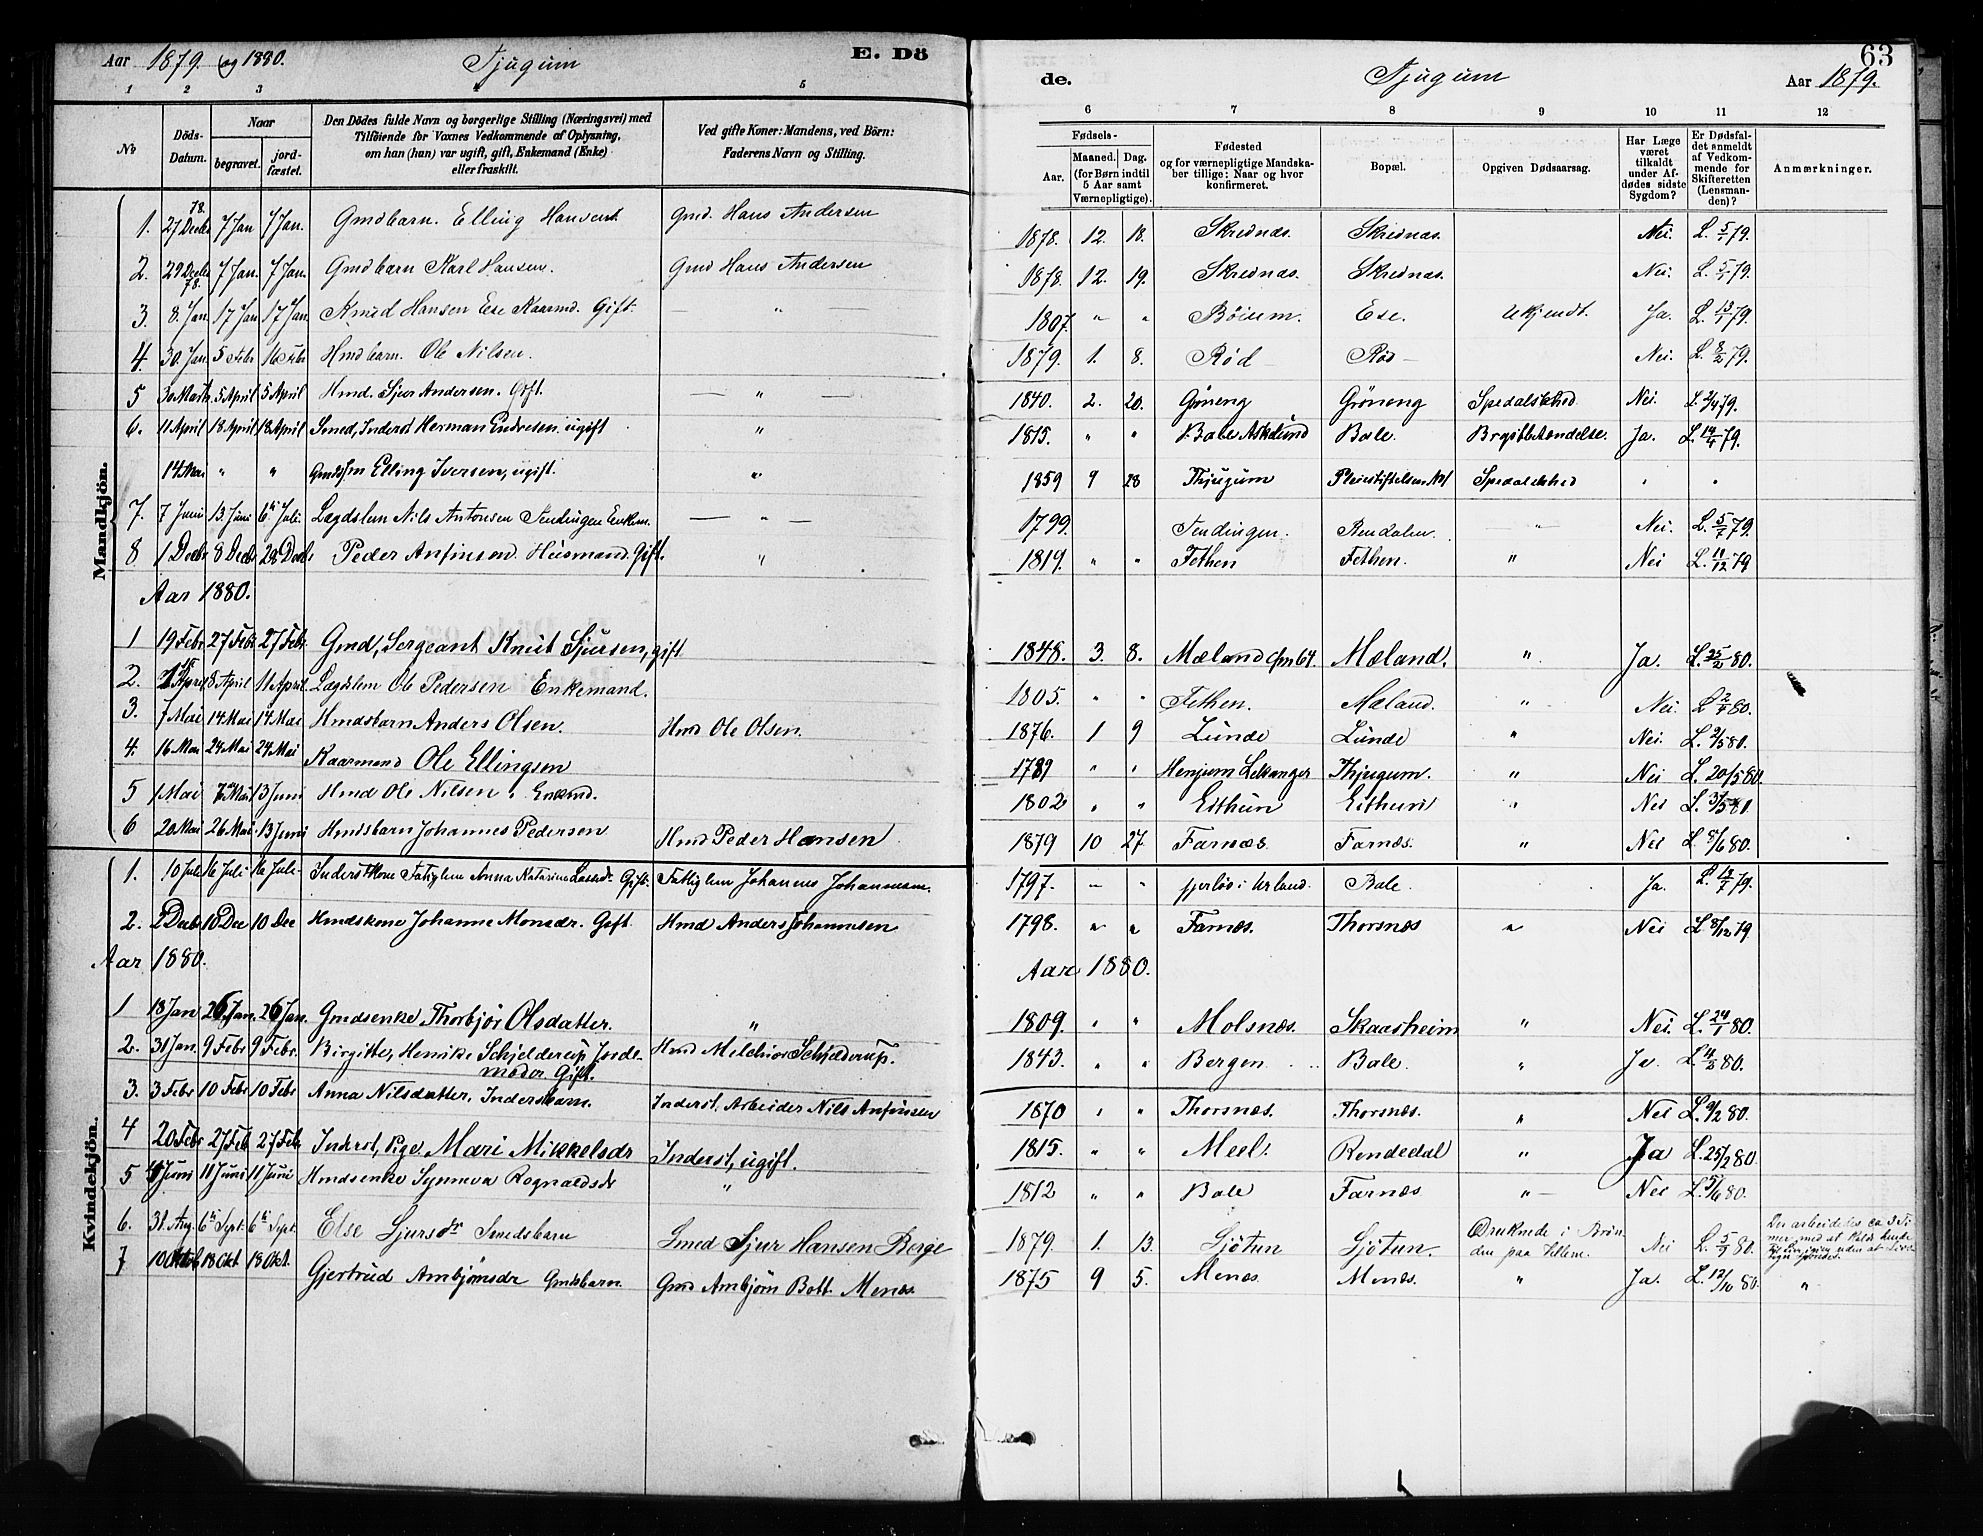 Aar 1879. og 1880. Tjugum E. Dö
1 2 3 4 5
No Döds-Datum. Naar begravet. jordfæstet. Den Dödes fulde Navn og borgerlige Stilling (Næringsvei) med Tilföiende for Voxnes Vedkommende af Oplysning, om han (hun) var ugift, gift, Enkemand (Enke) eller fraskilt. Ved gifte Koner: Mandens, ved Börn: Faderens Navn og Stilling.
Mandkjön.
1. 27 Decbr 78. 7 Jan 7 Jan. Gmdbarn. Elling Hansen. Gmd. Hans Andersen
2. 29 Decbr 78. 7 Jan. 7 Jan. Gmdbarn Karl Hansen. Gmd Hans Andersen
3. 8. Jan. 17 Jan 17 Jan. Knud Hansen Ese Kaarmd. Gift. — " —
4. 30. Jan. 5 Febr 16 Febr Hmdbarn. Ole Nilsen.
5 30 Marts 5 April 5 April Hmd. Sjur Andersen. Gift. — " —
6. 11 April 18 April 18 April Smed, Inderst Herman Endresen. ugift "
14 Mai " " Elling Iversen, ugift. "
7. 7 Juni 13. Juni 6te Juli. Lægdslem Nils Antonsen Tendingen Enkem. — " —
8 1 Decbr 8 Decbr 28 Decbr. Peder Anfinsen. Husmand. Gift. "
Aar 1880.
1 19 Febr 27 Febr 27 Febr Gmd, Sergeant Knut Sjursen, gift
2. 1 April 8 April 11 April. Lægdslem Ole Pedersen Enkemand.
3. 7 Mai 14 Mai 14 Mai Hmdsbarn Anders Olsen. Hmd Ole Olsen.
4. 16 Mai 24 Mai 24 Mai Kaarmand Ole Ellingsen
5 1 Mai 7 Mai 13 Juni Hmd Ole Nilsen. Enkmd.
6 20 Mai 26 Mai 13 Juni Hmdsbarn Johannes Pedersen Hmd Peder Hansen
Kvindekjön.
1. 10 Juli 16 Juli 16 Juli. Inderstkone Fattiglem Anna Katarina Lassedr. Gift. Fattiglem Johannes Johannesen.
2. 2 Decbr 10 Dec 10 Dec Hmdskone Johanne Monsdr. Gift. Hmd Anders Johannesen
Aar 1880.
1 18 Jan 26 Jan. 26 Jan. Gmdsenke Thorbjør Olsdatter. "
2. 31 Jan. 9 Febr 9 Febr. Birgitte, Henrike Schjelderup Jorde-
moder. Gift. Hmd Melchior Schjelderup.
3. 3 Febr 10 Febr 10 Febr Anna Nilsdatter. Inderstbarn. Inderst. Arbeider Nils Anfinsen
4 20 Febr 27 Febr 27 Febr Inderst, Pige. Mari Mikkelsdr Inderst, ugift.
5 4 Juni 11 Juni 11 Juni Hmdsenke Synneva Rognaldsdr "
6. 31. Aug. 6te Sept. 6te Sept. Else Sjursdr Smedsbarn Smed Sjur Hansen Berge
7 10 Oktb 18 Okt 18 Okt. Gjertrud Ambjønsdr Gmdsbarn. Gmd Ambjørn Bott. Menæs.
63
de. Tjugum Aar 1879.
6 7 8 9 10 11 12
Fødsels- Aar. Maaned. Dag. (for Børn indtil 5 Aar samt Værnepligtige). Fødested og for værnepligtige Mandskaber tillige: Naar og hvor konfirmeret. Bopæl. Opgiven Dødsaarsag. Har Læge været tilkaldt under Afdødes sidste Sygdom? Er Dødsfaldet anmeldt af Vedkommende for Skifteretten (Lensmanden)? Anmærkninger.
1878. 12. 18. Skrednæs. Skrednæs. Nei. L. 5/1 79.
1878. 12. 19. Skrednæs. Skrednæs. Nei. L. 5/1 79.
1807. " " Böium. Ese. Ukjendt. Ja. L. 13/1 79.
1879. 1. 8. Rød Rød — Nei. L. 8/2 79.
1840. 2. 20. Gröneng Gröneng Spedalskhed. Nei. L. 2/4 79.
1815. " " Bale Asklund Bale. Brystbetændelse. Ja. L. 14/4 79.
1859 9 28 Thjugum Pleiestiftelsen Spedalskhed " "
1799. Tendingen. Rendalen. — " — Nei. L. 5/7 79.
1819. " " Fethen Fethen. " Nei L. 11/12 79
1848. 3. 8. Mæland Cfm 64. Mæland. " Ja. L. 25/2 80.
1805. " " Fethen. Mæland. " Nei. L 2/4 80.
1876. 1 9 Lunde Lunde " Nei. L. 2/5 80.
1789 " " Henjum Lekanger Thjugum. " Nei L. 20/5 80.
1802 " " Eithun Eithun " Nei L. 3/5 80
1879 10 27. Farnæs. Farnæs. " Nei L. 8/6 80.
1797. — " i Urland. Bale. Ja. L. 12/7 79.
1798. " " Farnæs. Thorsnæs " Nei L 8/12 79
Aar 1880.
1809. " " Molsnæs. Skaasheim " Nei. L. 24/1 80.
1843. " " Bergen. Bale. " Ja. L 4/2 80.
1870 " " Thorsnæs. Thorsnæs. " Nei L. 9/2 80.
1815. " " Meel. Rendedal " Ja L. 25/2 80.
1812 " " Bale Farnæs " — Nei L. 5/6 80.
1879. 1. 13. Sjötun Sjötun. Druknede i Brøn-
den paa Tillene. Nei L. 5/9 80. Der arbeidedes ca 3 Ti-
mer med at kalde hende
til Live igjen uden at Livs-
tegn sporedes.
1875 9 5. Menæs. Menæs. " Ja. L. 12/10 80. "